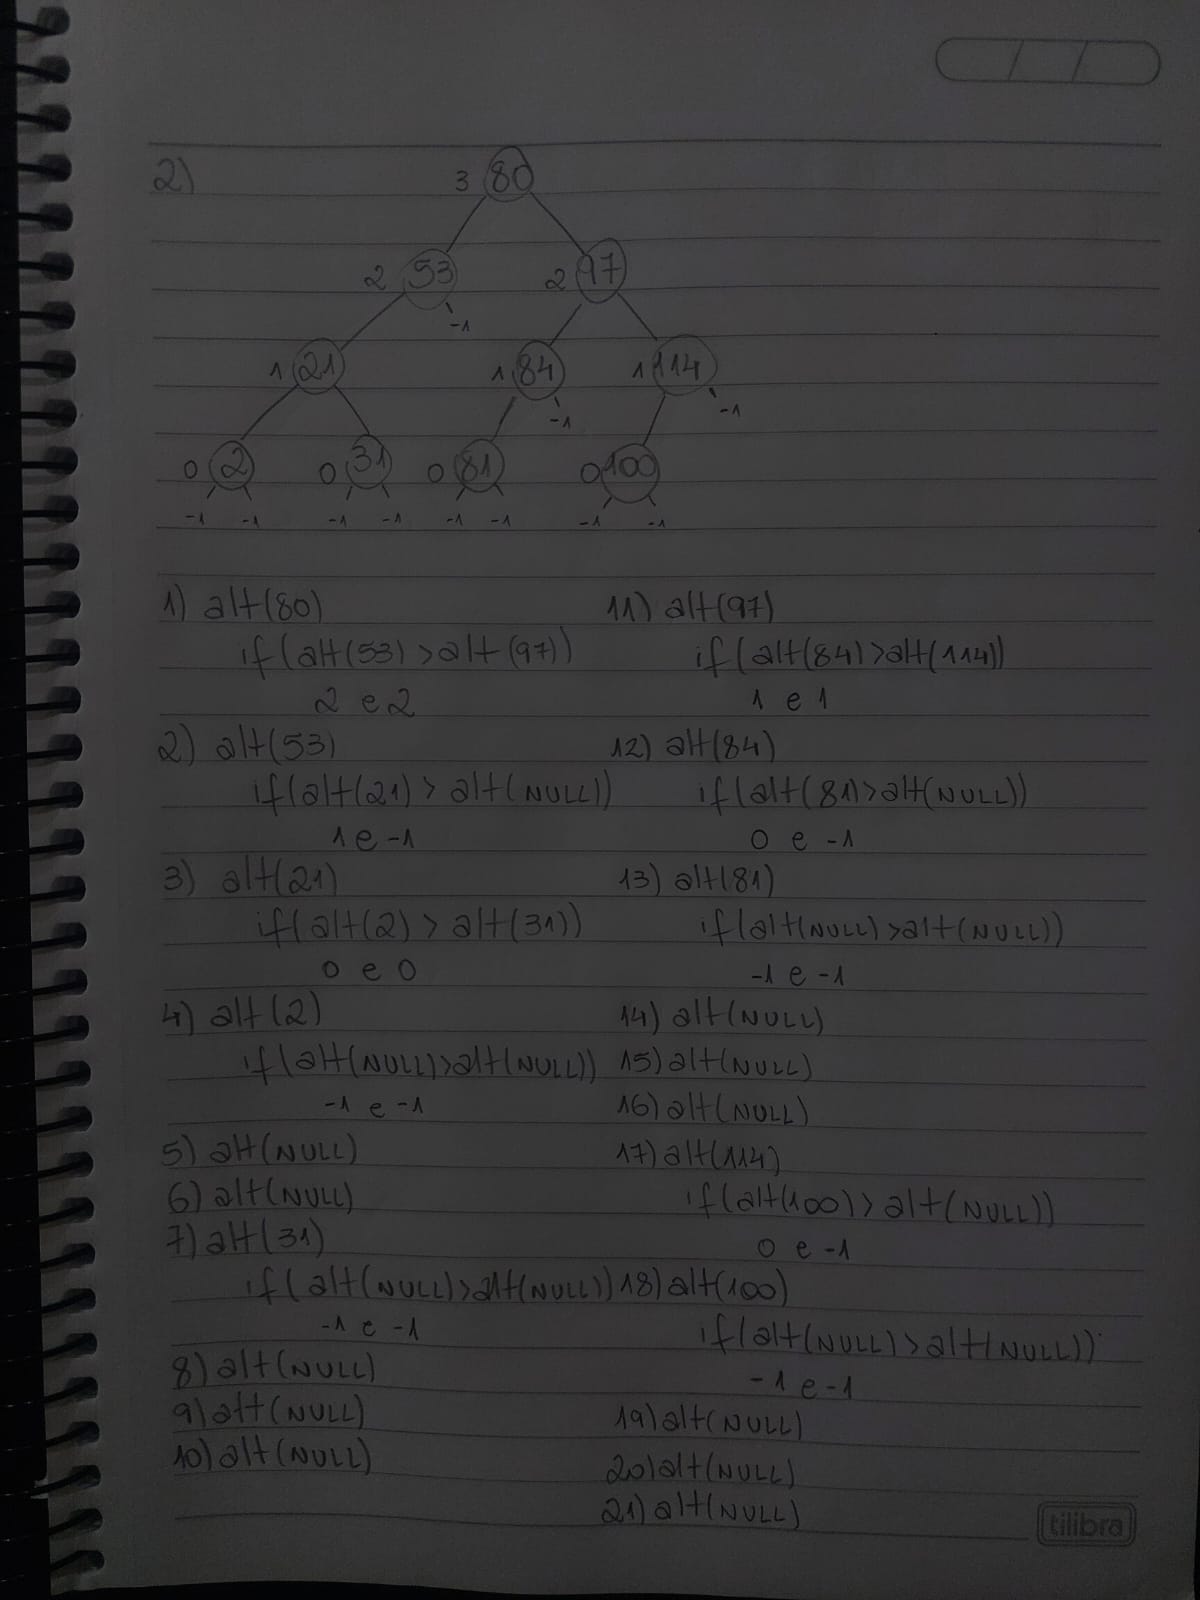 2)
3 80
2 53 2 97
-1
1 21 1 84 1 114
-1 -1
0 2 0 31 0 81 0 100
-1 -1 -1 -1 -1 -1 -1 -1
1) alt(80)
if(alt(53)>alt(97))
2 e 2
2) alt(53)
if(alt(21)>alt(NULL))
1 e -1
3) alt(21)
if(alt(2)>alt(31))
0 e 0
4) alt(2)
if(alt(NULL)>alt(NULL))
-1 e -1
5) alt(NULL)
6) alt(NULL)
7) alt(31)
if(alt(NULL)>alt(NULL))
-1 e -1
8) alt(NULL)
9) alt(NULL)
10) alt(NULL)
11) alt(97)
if(alt(84)>alt(114))
1 e 1
12) alt(84)
if(alt(81)>alt(NULL))
0 e -1
13) alt(81)
if(alt(NULL)>alt(NULL))
-1 e -1
14) alt(NULL)
15) alt(NULL)
16) alt(NULL)
17) alt(114)
if(alt(100)>alt(NULL))
0 e -1
18) alt(100)
if(alt(NULL)>alt(NULL))
-1 e -1
19) alt(NULL)
20) alt(NULL)
21) alt(NULL)
tilibra